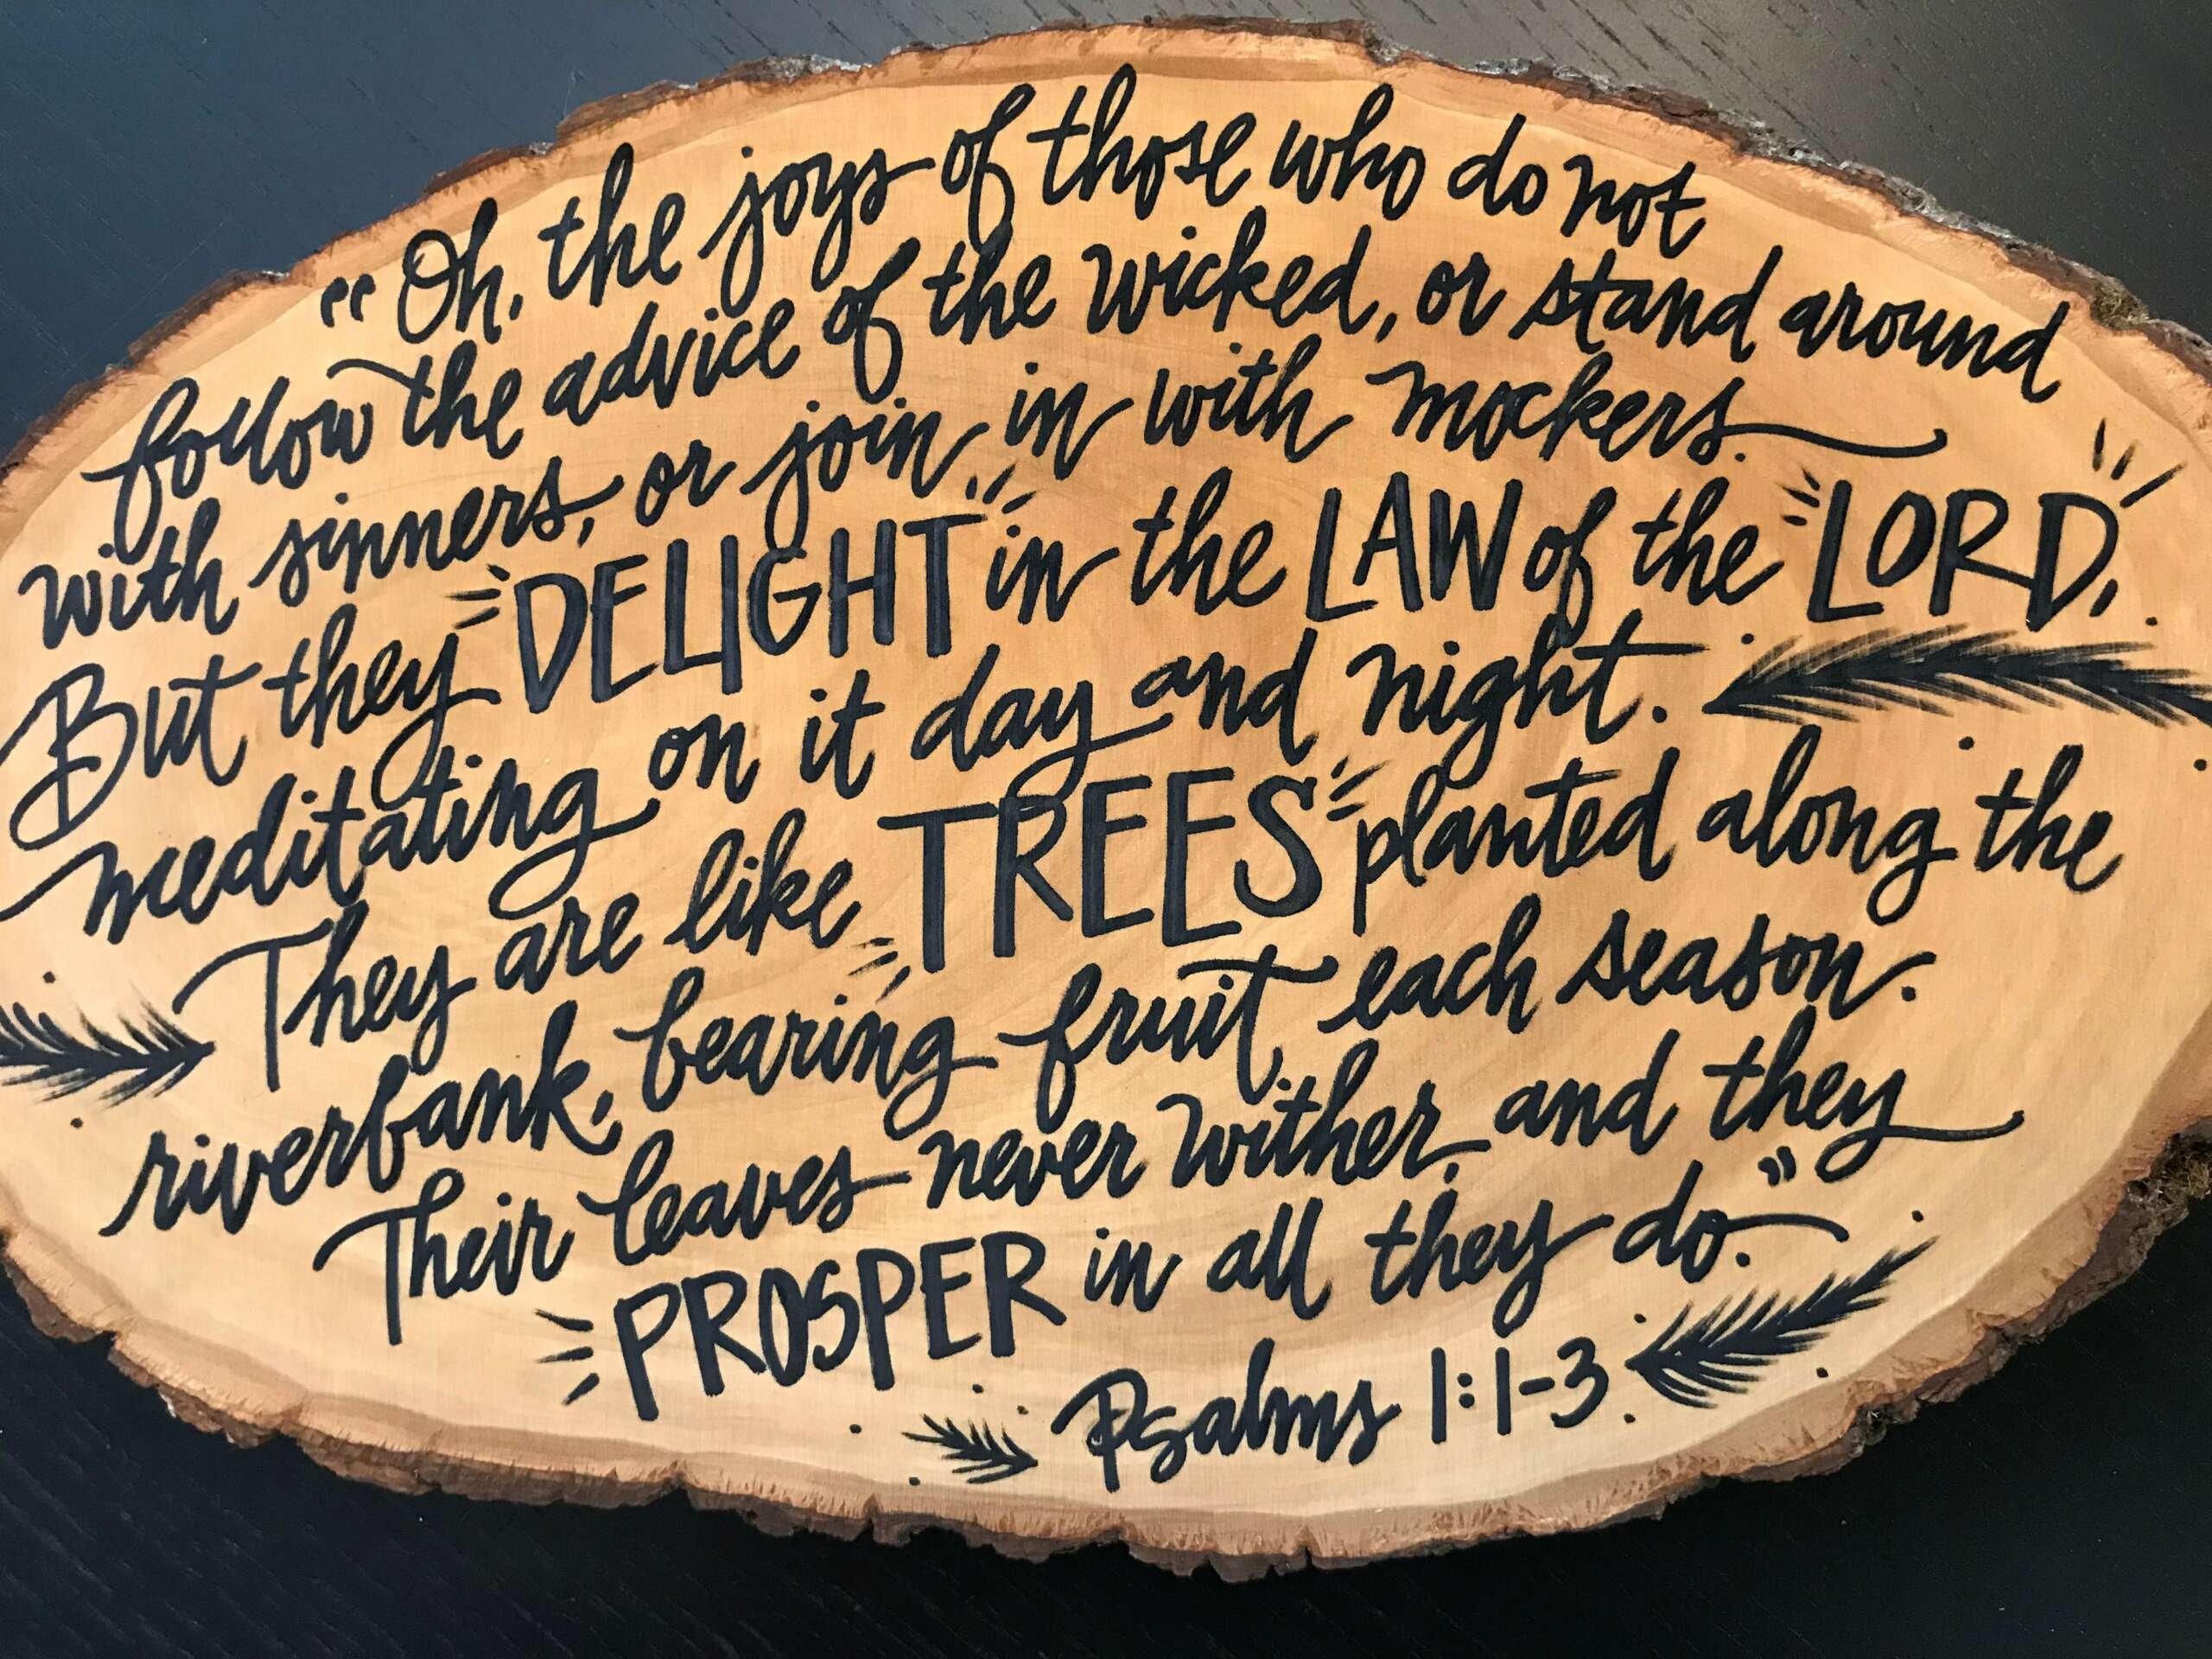 “Oh, the joys of those who do not
follow the advice of the wicked, or stand around
with sinners, or join in with mockers.
But they DELIGHT in the LAW of the LORD,
meditating on it day and night.
They are like TREES planted along the
riverbank, bearing fruit each season.
Their leaves never wither, and they
PROSPER in all they do.”
Psalms 1:1-3